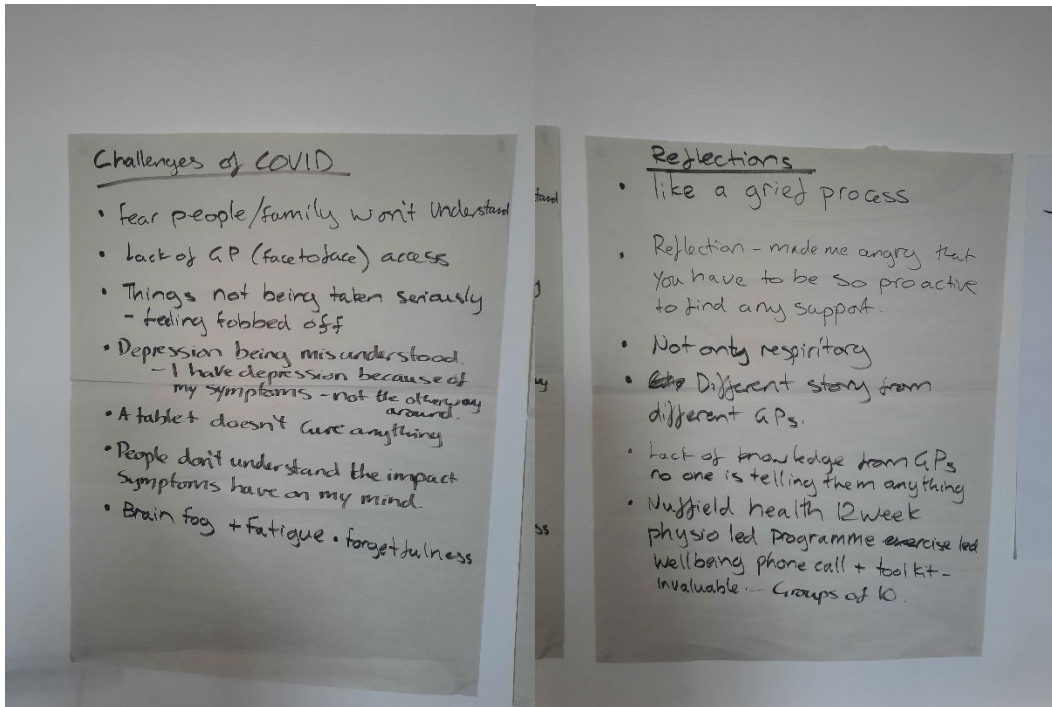 Challenges of COVID
• fear people/family won't understand
• Lack of GP (face to face) access
• Things not being taken seriously
- feeling fobbed off
• Depression being misunderstood.
- I have depression because of
my symptoms - not the other way
around.
• A tablet doesn't cure anything
• People don't understand the impact
symptoms have on my mind.
• Brain fog + fatigue • forgetfulness
Reflections
• like a grief process
• Reflection - made me angry that
you have to be so proactive
to find any support.
• Not only respiritory
• Different story from
different GPs.
• Lack of knowledge from GPs
no one is telling them anything
• Nuffield health 12 week
physio led programme exercise led
wellbeing phone call + toolkit -
invaluable. - Groups of 10.